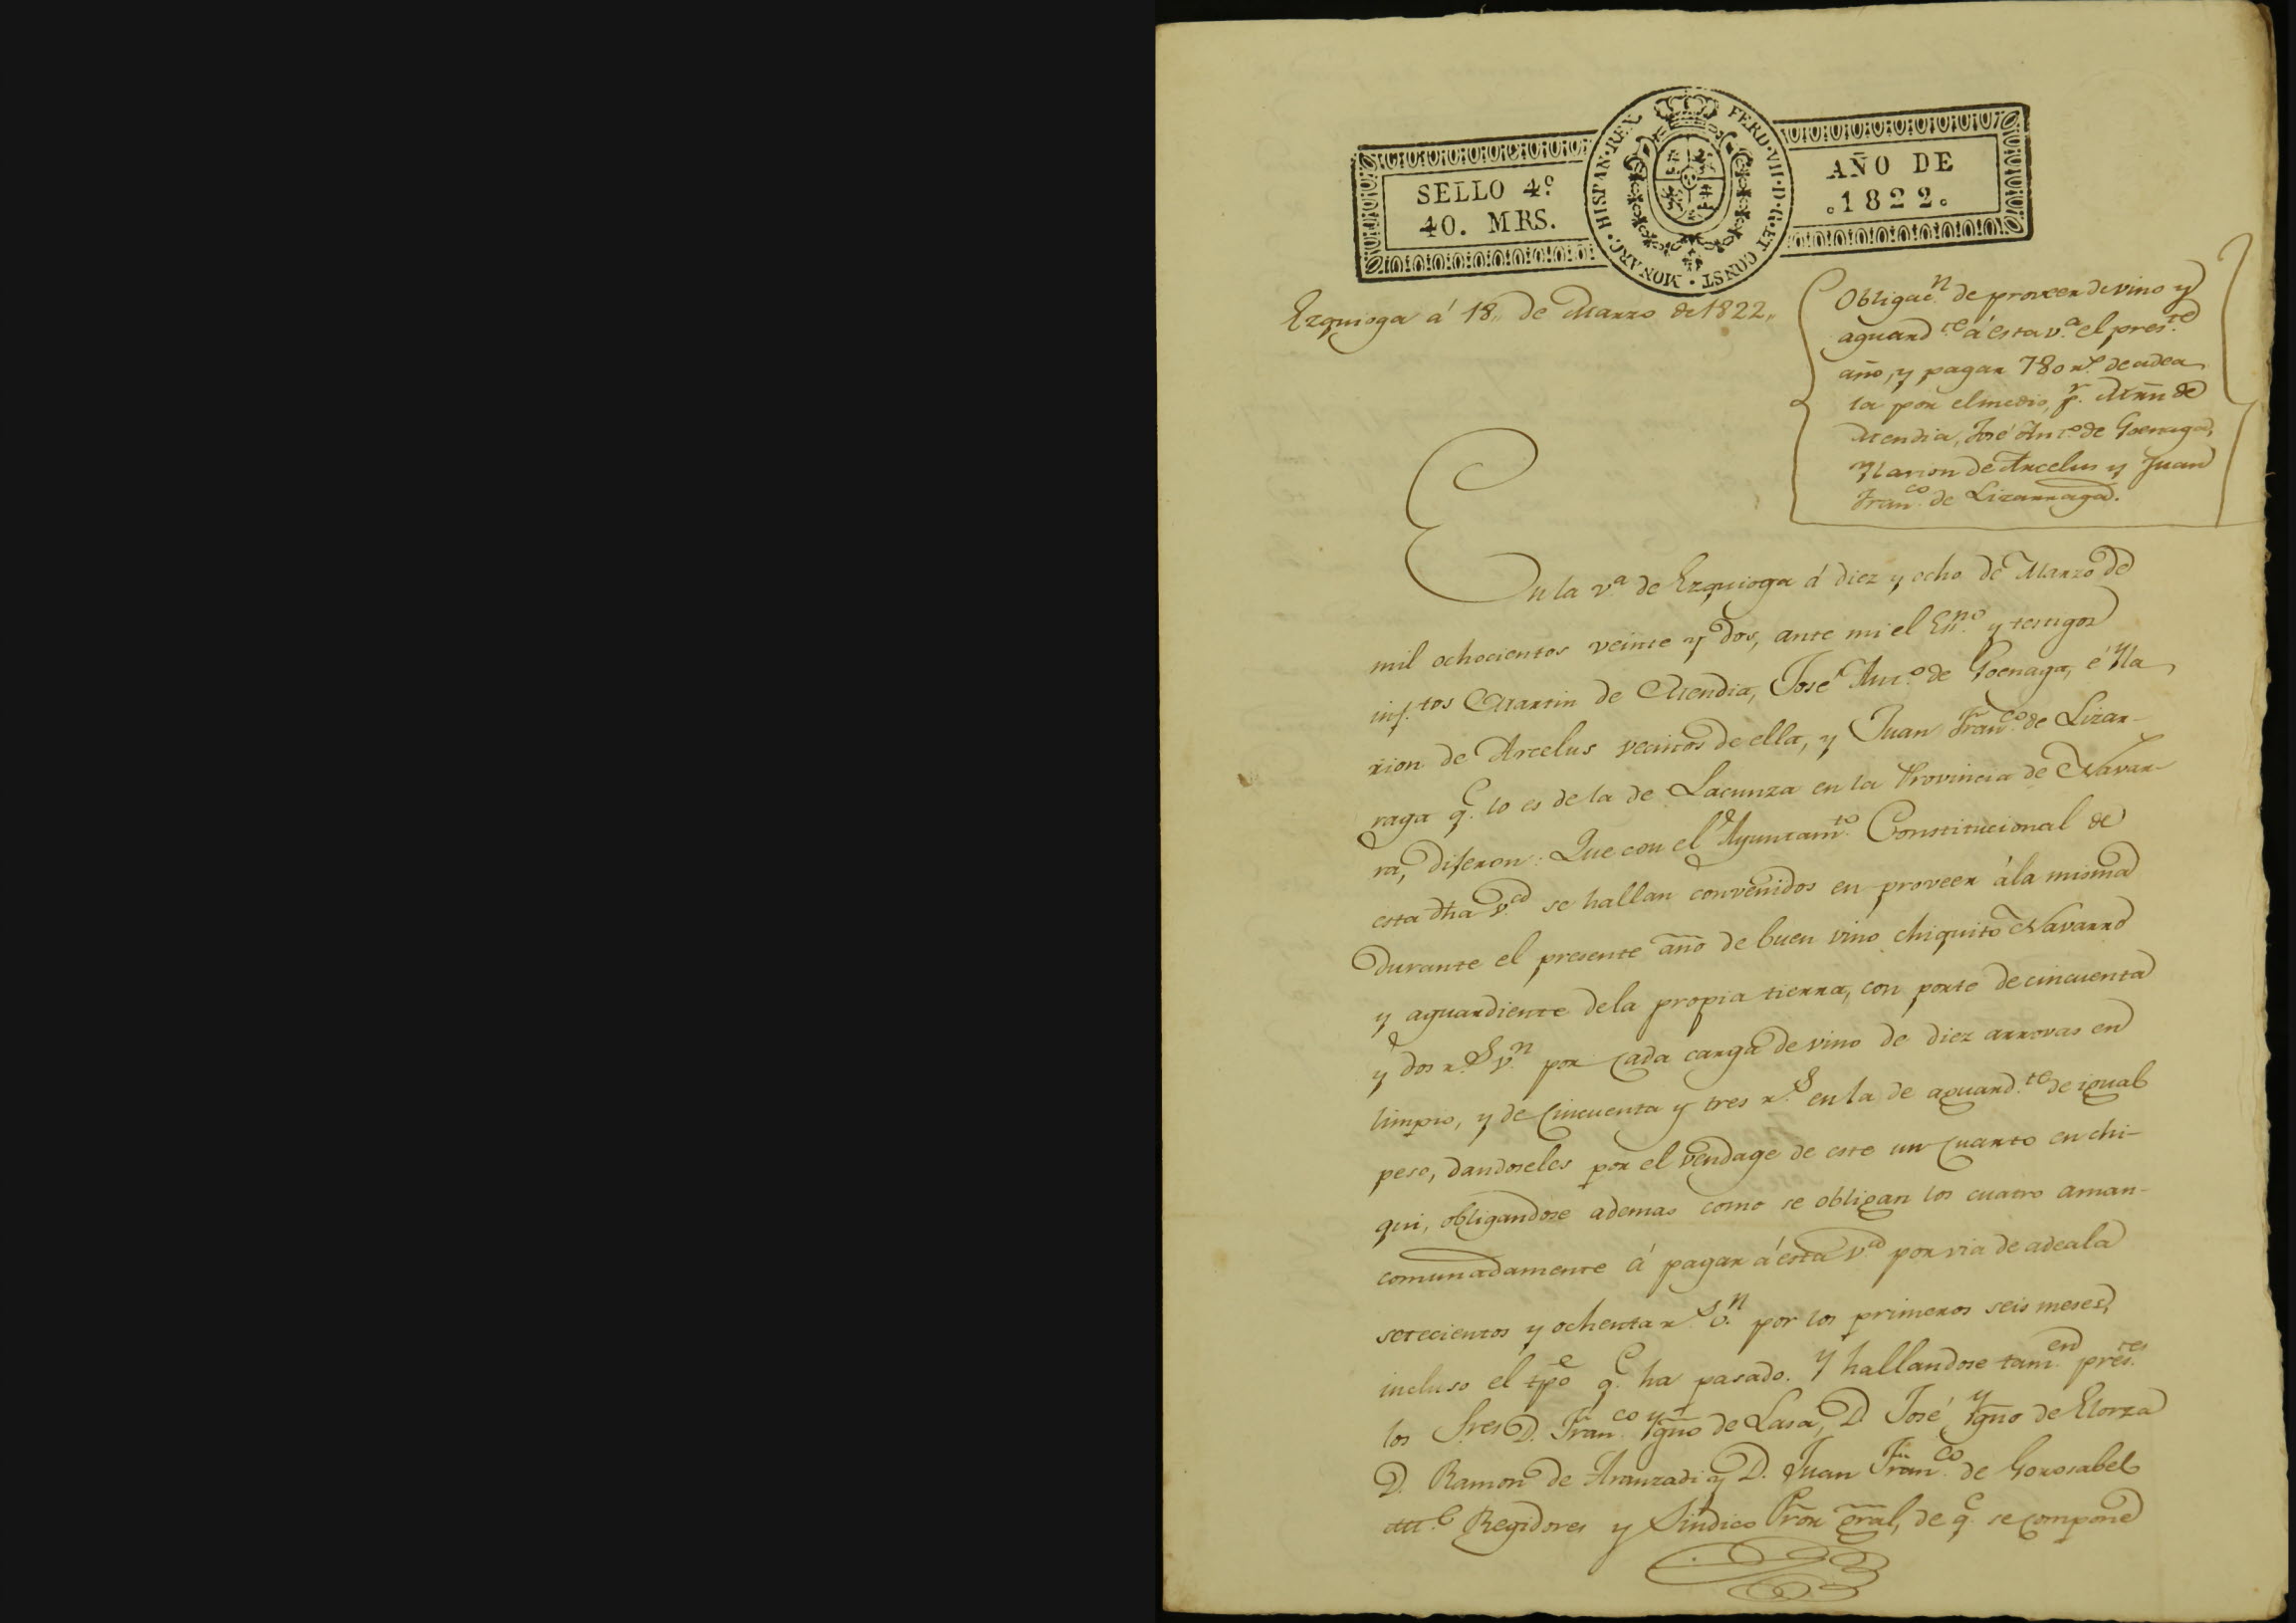 SELLO 4º
40. MRS.
HISPAN·REX FERD·VII·D·G·ET CONST · MONARC·
AÑO DE
.1822.
Ezquioga á 18,, de Marzo de 1822,,
Obligac.n de proveer de vino y
aguard.te á esta v.a el pres.te
año, y pagar 780 r.s de adea
la por el medio, p.r Mrñ de
Mendia, José Ant.o de Goenaga,
Ylarion de Arcelus y Juan
Fran.co de Lizarraga.
En la v.a de Ezquioga á diez y ocho de Marzo de
mil ochocientos veinte y dos, ante mi el Es.no y testigos
inf.tos Martin de Mendia, José Ant.o de Goenaga, é Yla
rion de Arcelus vecinos de ella, y Juan Fran.co de Lizar-
raga q.e lo es de la de Lacunza en la Provincia de Navar-
ra, dijeron: Que con el Ayuntam.to Constitucional de
esta dha v.a se hallan convenidos en proveer á la misma
durante el presente año de buen vino chiquito Navarro
y aguardiente de la propia tierra, con porte de cincuenta
y dos r.s v.n por cada carga de vino de diez arrovas en
limpio, y de cincuenta y tres r.s en la de aguard.te de igual
peso, dandoseles por el vendage de este un cuarto en chi-
qui, obligandose ademas como se obligan los cuatro aman-
comunadamente á pagar á esta v.a por via de adeala
setecientos y ochenta r.s v.n por los primeros seis meses,
incluso el tpõ q.e ha pasado. Y hallandose tam.en pres.tes
los Sres D. Fran.co Ygño de Lasa, D. José Ygño de Elorza
D. Ramon de Aranzadi y D. Juan Fran.co de Gorosabel
Al.e Regidores y Sindico Pror gral, de q.e se compone